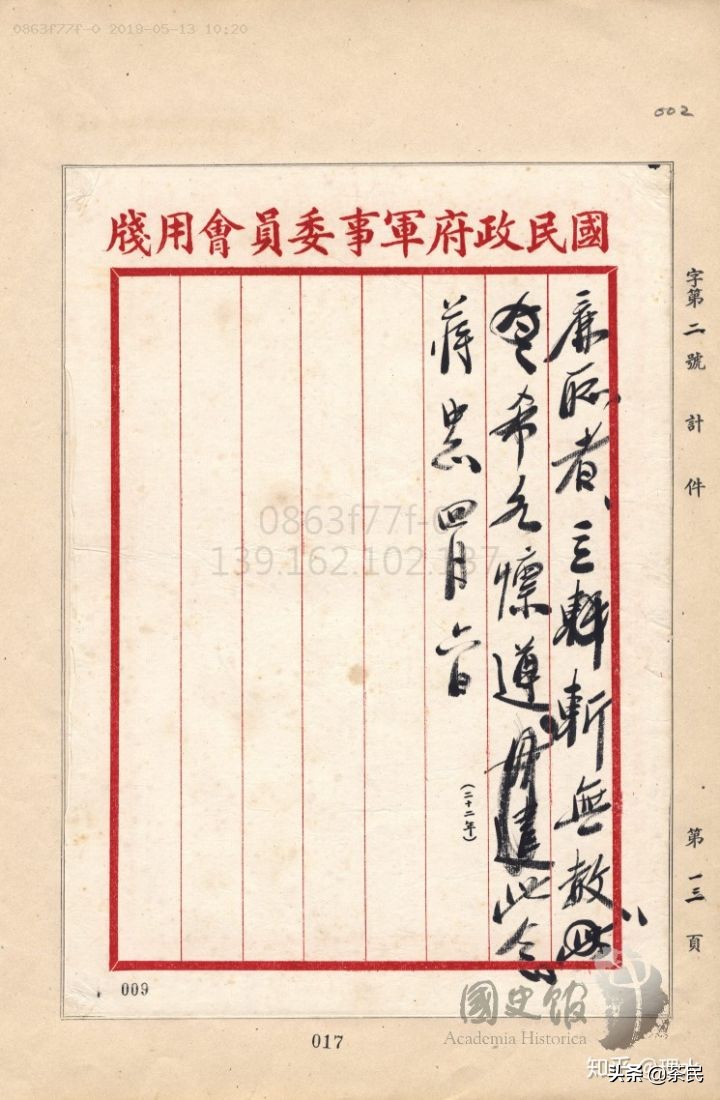 0863f77f-0 2019-05-13 10:20
002
國民政府軍事委員會用牋
字第二號 計 件
第 一三 頁
廉恥者、立斬無赦
希各懍遵毋違此令
蔣中正 四月六日
(二十二年)
0863f77f-0
139.162.102.187
009
017
國史館
Academia Historica
知乎
头条 @茶民